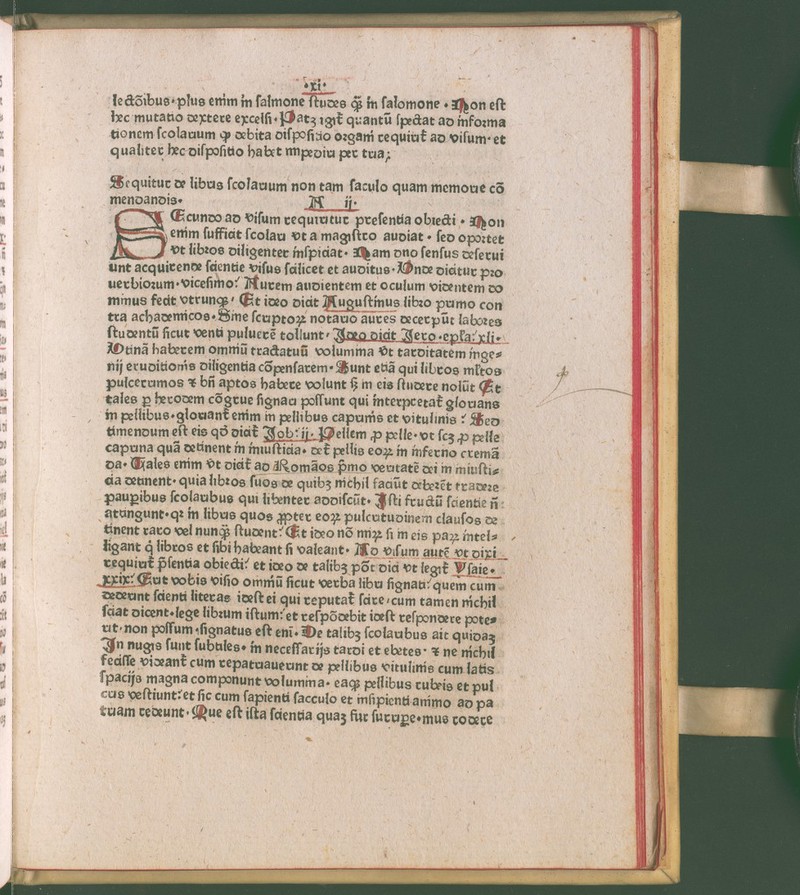 ·xi·
lectōibus·plus enim in salmone studes qꝫ̄ in salomone · Non est
hec mutatio dextere excelsi · Patꝫ igit̄ quantū spectat ad informa
tionem scolarium ꝙ debita dispositio organi requirit̄ ad visum· et
qualiter hec dispositio habet impediri per tria;
Sequitur de libris scolarium non tam saculo quam memorie cō
mendandis· R ij·
SEcundo ad visum requiritur presentia obiecti · Non
enim sufficit scolari vt a magistro audiat · sed oportet
vt libros diligenter inspiciat· Nam duo sensus deserui
unt acquirende scientie visus scilicet et auditus· Vnde dicitur pro
uerbiorum·vicesimo: Aurem audientem et oculum videntem do
minus fecit vtrunqꝫ· Et ideo dicit Augustinus libro primo con
tra achademicos· Sine scriptoꝝ notario aures decerpūt labores
studentū sicut venti puluerē tollunt· Ideo dicit Jero·epl̄a: xli·
Vtinā haberem omniū tractatuū volumina vt tarditatem inge⸗
nij eruditionis diligentia cōpensarem· Sunt etiā qui libros ml̄tos
pulcerrimos ⁊ bn̄ aptos habere volunt sꝫ in eis studere nolūt Et
tales p herodem cōgrue signari possunt qui interpretat̄ glorians
in pellibus·gloriant̄ enim in pellibus caprinis et vitulinis : Sed
timendum est eis qd̄ dicit̄ Job: ij· Pellem ꝓ pelle· vt scꝫ ꝓ pelle
caprina quā detinent in iniusticia· det̄ pellis eoꝝ in inferno cremā
da· Tales enim vt dicit̄ ad Romāos p̄mo veritatē dei in iniusti⸗
cia detinent· quia libros suos de quibꝫ nichil faciūt deberēt tradere
pauꝑibus scolaribus qui libenter addiscūt· Isti fructū scientie n̄:
attingunt· qꝛ in libris quos ꝓpter eoꝝ pulcritudinem clausos de
tinent raro vel nunqꝫ̄ student: Et ideo nō miꝝ si in eis paꝝ intel⸗
ligant q̇ libros et sibi habeant si valeant· Ad visum autē vt dixi
requirit̄ p̄sentia obiecti: et ideo de talibꝫ pōt dici vt legit̄ Ysaie·
xxix: Erit vobis visio omniū sicut verba libri signati: quem cum
dederint scienti literas idest ei qui reputat̄ scire·cum tamen nichil
sciat dicent·lege librum istum: et respōdebit idest respondere pote⸗
rit·non possum·signatus est eni· De talibꝫ scolaribus ait quidaꝫ
In nugis sunt subtiles· in necessarijs tardi et ebetes· ⁊ ne nichil
fecisse videant̄ cum repatriauerint de pellibus vitulinis cum latis
spacijs magna componunt volumina· eaqꝫ pellibus rubeis et pul
cris vestiunt: et sic cum sapienti sacculo et insipienti animo ad pa
triam redeunt· Que est ista scientia quaꝫ fur surriꝑe·mus rodere